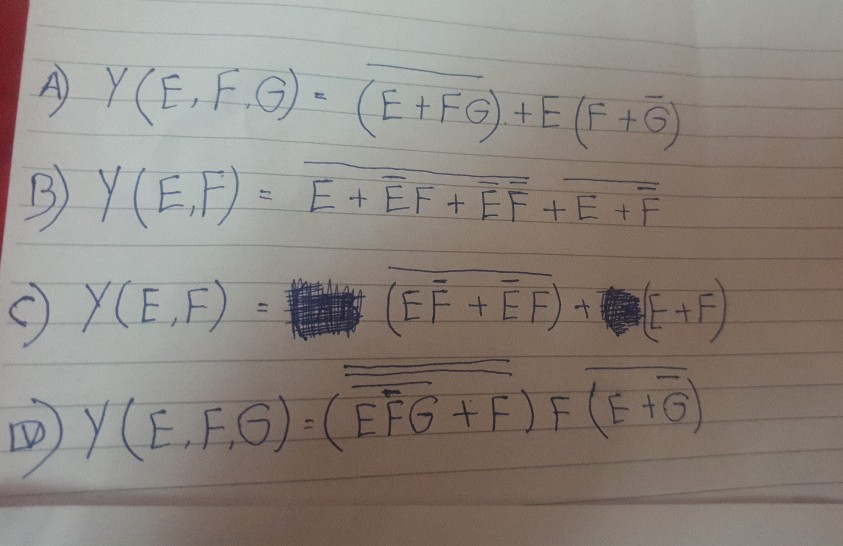 A) Y(E,F,G) = \overline{(E+FG)}+E(F+\overline{G})
B) Y(E,F) = \overline{E+\overline{E}F+\overline{E}\overline{F}}+\overline{E+\overline{F}}
C) Y(E,F) = \overline{(E\overline{F}+\overline{E}F)}+(E+F)
D) Y(E,F,G)=(\overline{\overline{\overline{E\overline{F}G}+F}})F\overline{(E+\overline{G})}